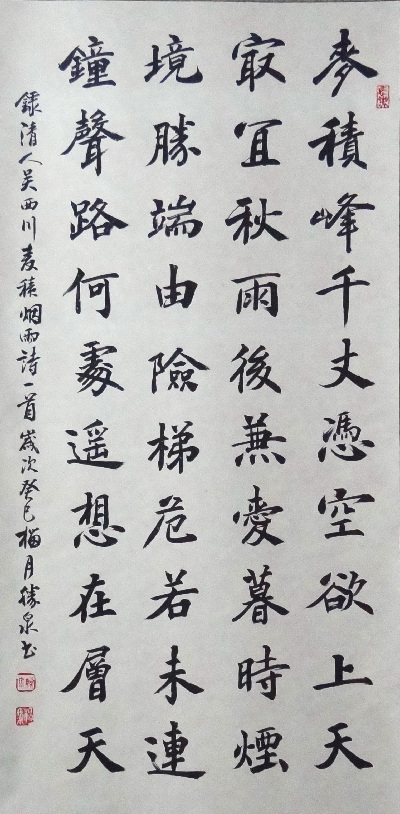 麥積峰千丈憑空欲上天
㝡冝秋雨後兼愛暮時煙
境勝端由險梯危若未連
鐘聲路何處遥想在層天
録清人吴西川麦積烟雨詩一首歲次癸巳梅月勝泉书